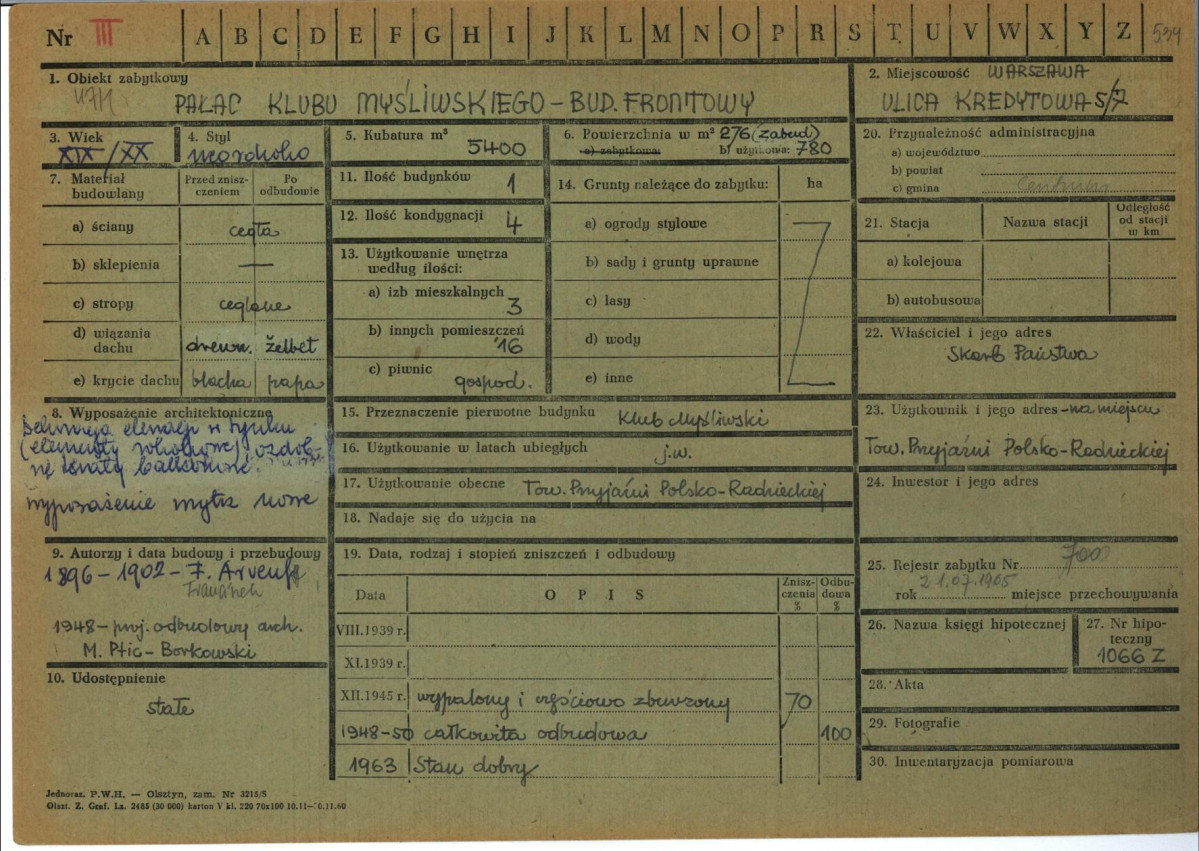 Nr III A B C D E F G H I J K L M N O P R S T U V W X Y Z 534
1. Obiekt zabytkowy
47/1 PAŁAC KLUBU MYŚLIWSKIEGO - BUD. FRONTOWY
2. Miejscowość WARSZAWA
ULICA KREDYTOWA 5/7
3. Wiek
XIX/XX
4. Styl
neorokoko
5. Kubatura m³
5400
6. Powierzchnia w m² 276 (zabud)
a) zabytkowa: b) użytkowa: 780
20. Przynależność administracyjna
a) województwo
b) powiat
c) gmina Centrum
7. Materiał
budowlany
Przed znisz-
czeniem
Po
odbudowie
a) ściany cegła
b) sklepienia —
c) stropy ceglane
d) wiązania
dachu drewn. żelbet
e) krycie dachu blacha papa
11. Ilość budynków 1
12. Ilość kondygnacji 4
13. Użytkowanie wnętrza
według ilości:
a) izb mieszkalnych 3
b) innych pomieszczeń
16
c) piwnic gospod.
14. Grunty należące do zabytku: ha
a) ogrody stylowe
b) sady i grunty uprawne
c) lasy
d) wody
e) inne
21. Stacja Nazwa stacji
Odległość
od stacji
w km
a) kolejowa
b) autobusowa
22. Właściciel i jego adres
Skarb Państwa
8. Wyposażenie architektoniczne
elewacji w tynku
(elementy rokokowe), ozdob-
ne kraty balkonowe.
wyposażenie wnętrz nowe
15. Przeznaczenie pierwotne budynku Klub Myśliwski
16. Użytkowanie w latach ubiegłych j.w.
17. Użytkowanie obecne Tow. Przyjaźni Polsko-Radzieckiej
18. Nadaje się do użycia na
23. Użytkownik i jego adres - na miejscu
Tow. Przyjaźni Polsko-Radzieckiej
24. Inwestor i jego adres
9. Autorzy i data budowy i przebudowy
1896-1902 - F. Arveuf
Franciszek
1948 - proj. odbudowy arch.
M. Ptic-Borkowski
10. Udostępnienie
stałe
19. Data, rodzaj i stopień zniszczeń i odbudowy
Data O P I S
Znisz-
czenia
%
Odbu-
dowa
%
VIII.1939 r.
XI.1939 r.
XII.1945 r. wypalony i częściowo zburzony 70
1948-50 całkowita odbudowa 100
1963 Stan dobry
25. Rejestr zabytku Nr 700
rok 21.07.1965 miejsce przechowywania
26. Nazwa księgi hipotecznej
27. Nr hipo-
teczny
1066 Z
28. Akta
29. Fotografie
30. Inwentaryzacja pomiarowa
Jednoraz. P.W.H. — Olsztyn, zam. Nr 3215/S
Olszt. Z. Graf. Lz. 2485 (30 000) karton V kl. 220 70x100 10.11—10.11.60